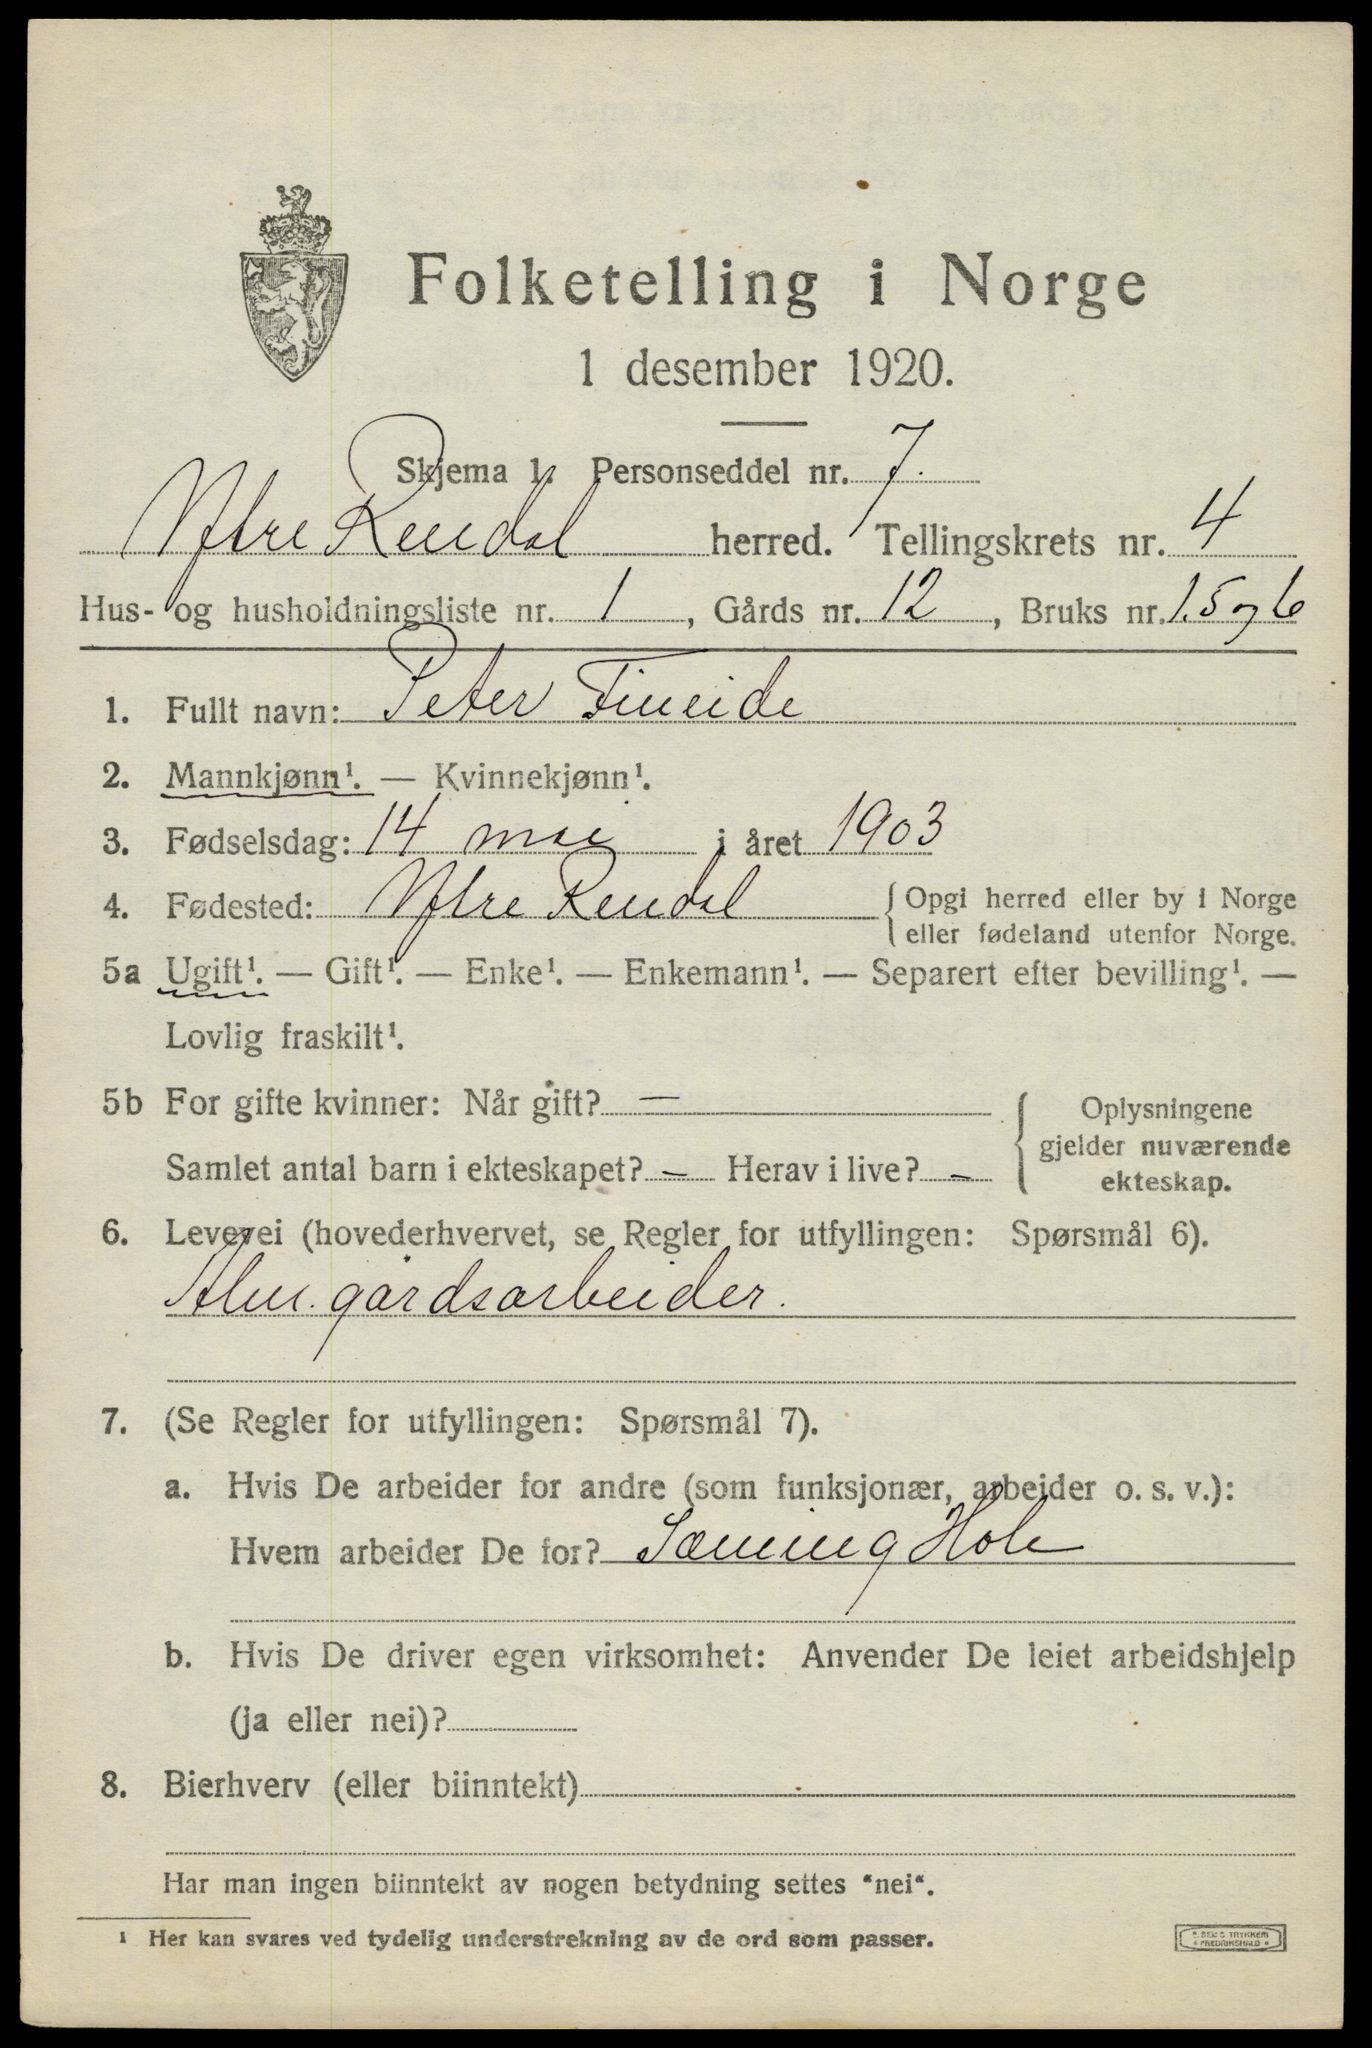 Folketelling i Norge
1 desember 1920.
Skjema 1. Personseddel nr. 7.
Ytre Rendal herred. Tellingskrets nr. 4
Hus- og husholdningsliste nr. 1, Gårds nr. 12, Bruks nr. 1.5 og 6
1. Fullt navn: Peter Fineide
2. Mannkjønn¹. — Kvinnekjønn¹.
3. Fødselsdag: 14 mai i året 1903
4. Fødested: Ytre Rendal {Opgi herred eller by i Norge
eller fødeland utenfor Norge.
5a Ugift¹. — Gift¹. — Enke¹. — Enkemann¹. — Separert efter bevilling¹. —
Lovlig fraskilt¹.
5b For gifte kvinner: Når gift? —
Samlet antal barn i ekteskapet? — Herav i live? —
{Oplysningene
gjelder nuværende
ekteskap.
6. Levevei (hovederhvervet, se Regler for utfyllingen: Spørsmål 6).
Alm. gårdsarbeider.
7. (Se Regler for utfyllingen: Spørsmål 7).
a. Hvis De arbeider for andre (som funksjonær, arbeider o. s. v.):
Hvem arbeider De for? Sæming Hole
b. Hvis De driver egen virksomhet: Anvender De leiet arbeidshjelp
(ja eller nei)?
8. Bierhverv (eller biinntekt)
Har man ingen biinntekt av nogen betydning settes "nei".
¹ Her kan svares ved tydelig understrekning av de ord som passer.
TRYKKERI
FREDRIKSHALD